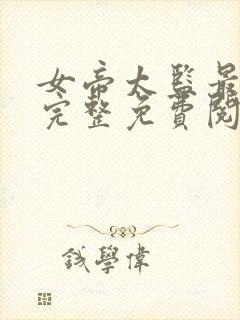 女帝太監最
完整免費閱
錢學偉